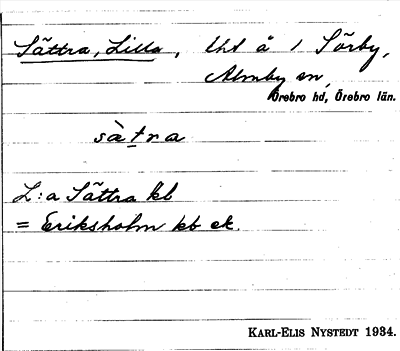 Sättra, Lilla, lht å 1 Sörby,
Almby sn,
Örebro hd, Örebro län.
sàtra
L:a Sättra kb
= Eriksholm kb ek.
KARL-ELIS NYSTEDT 1934.